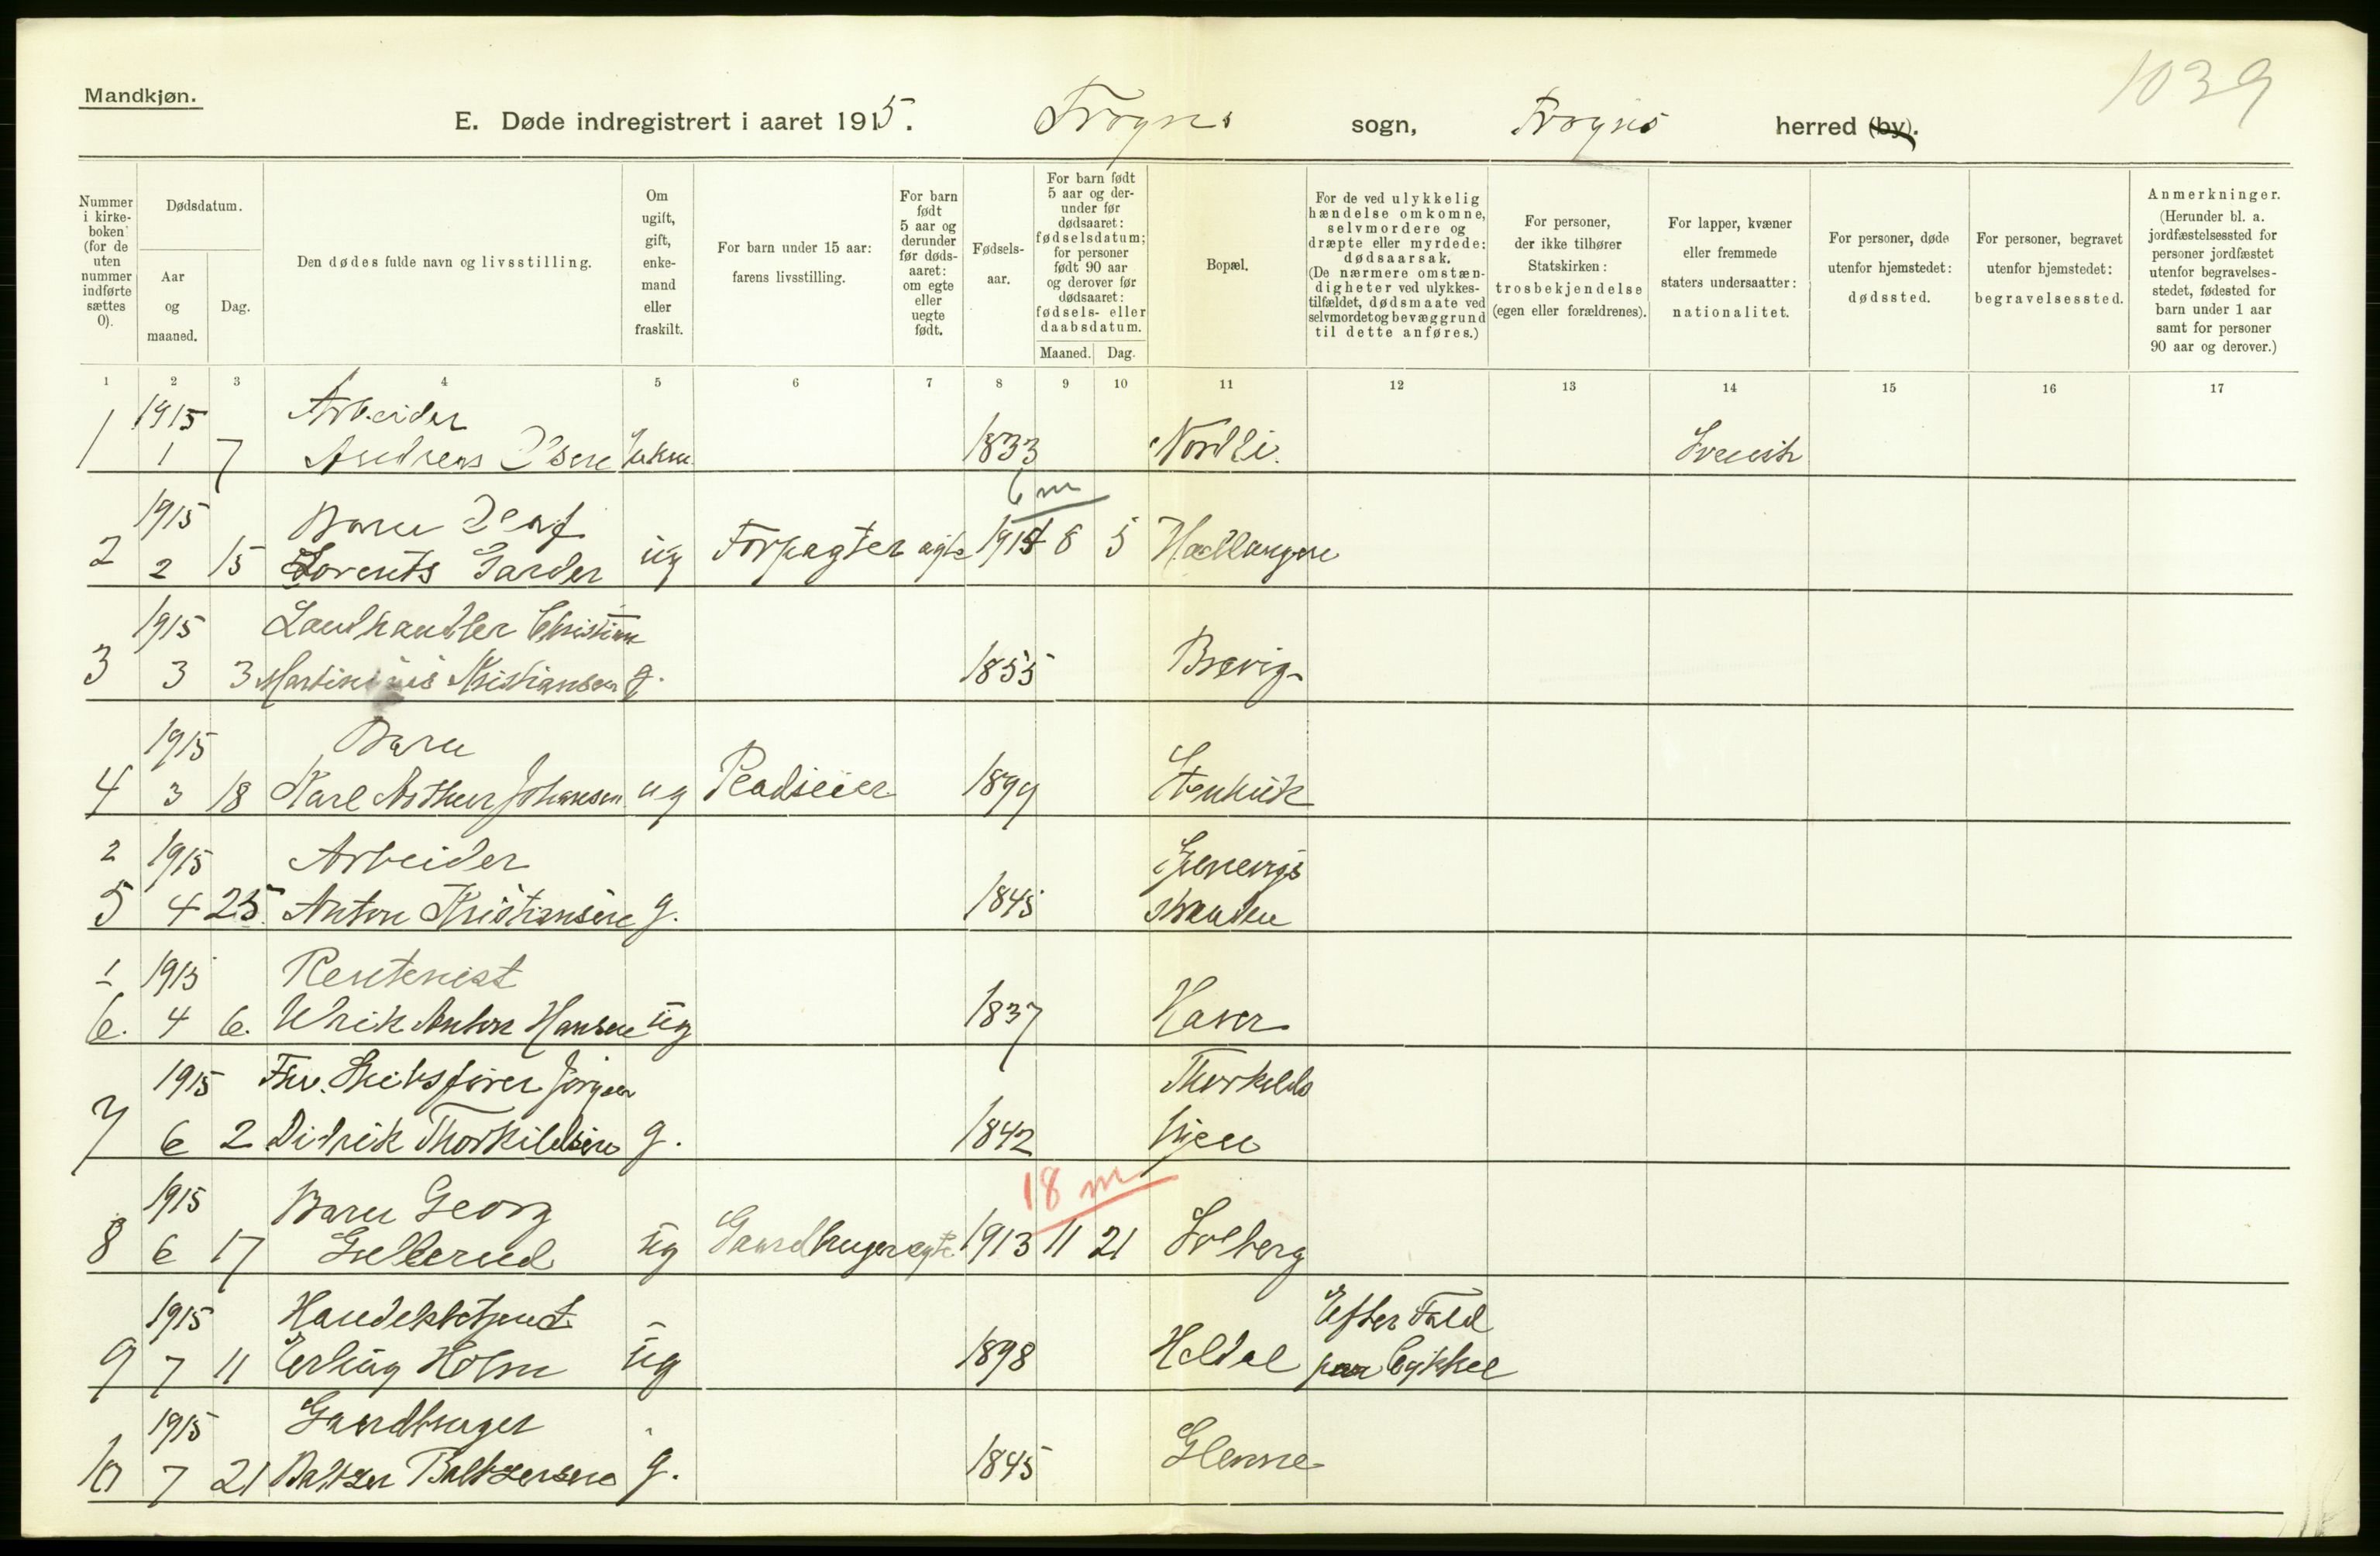 Mandkjøn.
1039
E. Døde indregistrert i aaret 1915. Frogns sogn, Frogns herred (by).
Nummer i kirke-boken (for de uten nummer indførte sættes 0).
Dødsdatum.
Aar og maaned.
Dag.
Den dødes fulde navn og livsstilling.
Om ugift, gift, enke-mand eller fraskilt.
For barn under 15 aar: farens livsstilling.
For barn født 5 aar og derunder før døds-aaret: om egte eller uegte født.
Fødsels-aar.
For barn født 5 aar og der-under før dødsaaret: fødselsdatum; for personer født 90 aar og derover før dødsaaret: fødsels- eller daabsdatum.
Maaned.
Dag.
Bopæl.
For de ved ulykkelig hændelse omkomne, selvmordere og dræpte eller myrdede: dødsaarsak. (De nærmere omstæn-digheter ved ulykkes-tilfældet, dødsmaate ved selvmordet og bevæggrund til dette anføres.)
For personer, der ikke tilhører Statskirken: trosbekjendelse (egen eller forældrenes).
For lapper, kvæner eller fremmede staters undersaatter: nationalitet.
For personer, døde utenfor hjemstedet: dødssted.
For personer, begravet utenfor hjemstedet: begravelsessted.
Anmerkninger. (Herunder bl. a. jordfæstelsessted for personer jordfæstet utenfor begravelses-stedet, fødested for barn under 1 aar samt for personer 90 aar og derover.)
1 2 3 4 5 6 7 8 9 10 11 12 13 14 15 16 17
1915 Arbeider
1 1 7 Andreas Olsen 1833 Nordli. Svensk
6 m
1915 Barn Olaf
2 2 15 Lorents Garder ug Forpagter egte 1914 8 5 Hallangen
1915 Landhandler Christian
3 3 3 Martinius Kristiansen g. 1855 Brevig
1915 Barn
4 3 18 Karl Arthur Johansen ug Pladseier 1899
2 1915 Arbeider
5 4 25 Anton Kristiansen g. 1845 stranden
1 1915 Rentenist
6. 4 6. Ulrik Anton Hansen ug 1837 Haver
1915 Fhv. Skibsfører Jørgen Thorkilds
7 6 2 Didrik Thorkildsen g. 1842 hjem
18 m
1915 Barn Georg
8 6 17 Gullerud ug Gaardbruger egte 1913 11 21 Solberg
1915 Handelsbetjent Efter Fald
9 7 11 Erling Holm ug 1898 Heldal paa Cykkel
1915 Gaardbruger
10 7 21 Baltzer Baltzersen g. 1845 Glenne